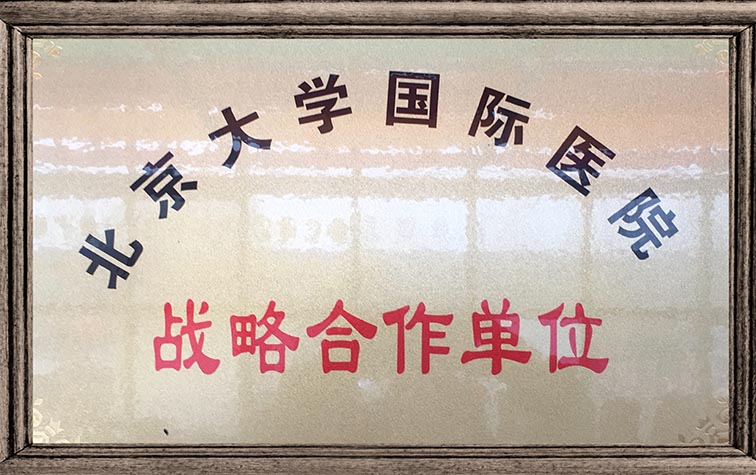 北京大学国际医院
战略合作单位